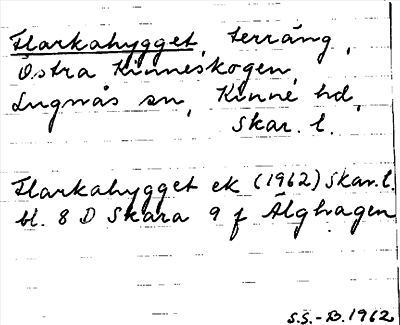 Flarkahygget, terräng,
Östra Kinneskogen,
Lugnås sn, Kinne hd,
Skar. l.
Flarkahygget ek (1962) Skar. l.
bl. 8 D Skara 9 f Älghagen
S.S.-B. 1962